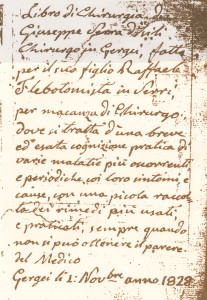 Libro di Chirurgia di
Giuseppe
Chirurgo in Gergei fatto
per il suo figlio Raffaele
Flebotomista in Serri
per mancanza di Chirurgo
dove si tratta d'una breve
ed esata cognizione pratica di
varie malatie più occorrenti
e periodiche, coi loro sintomi,
cause, con una picola raccol
ta dei rimedi più usali
e praticali, sempre quando
non si può ottenire il parere
del Medico
Gergei li 1: Novbre anno 1828